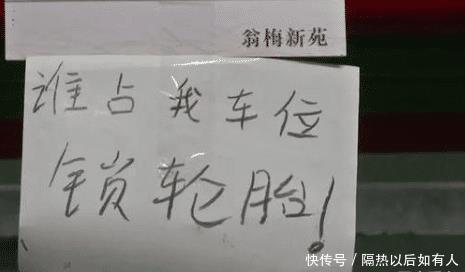 翁梅新苑
谁占我车位
锁轮胎！
快传号／隔热以后如有人